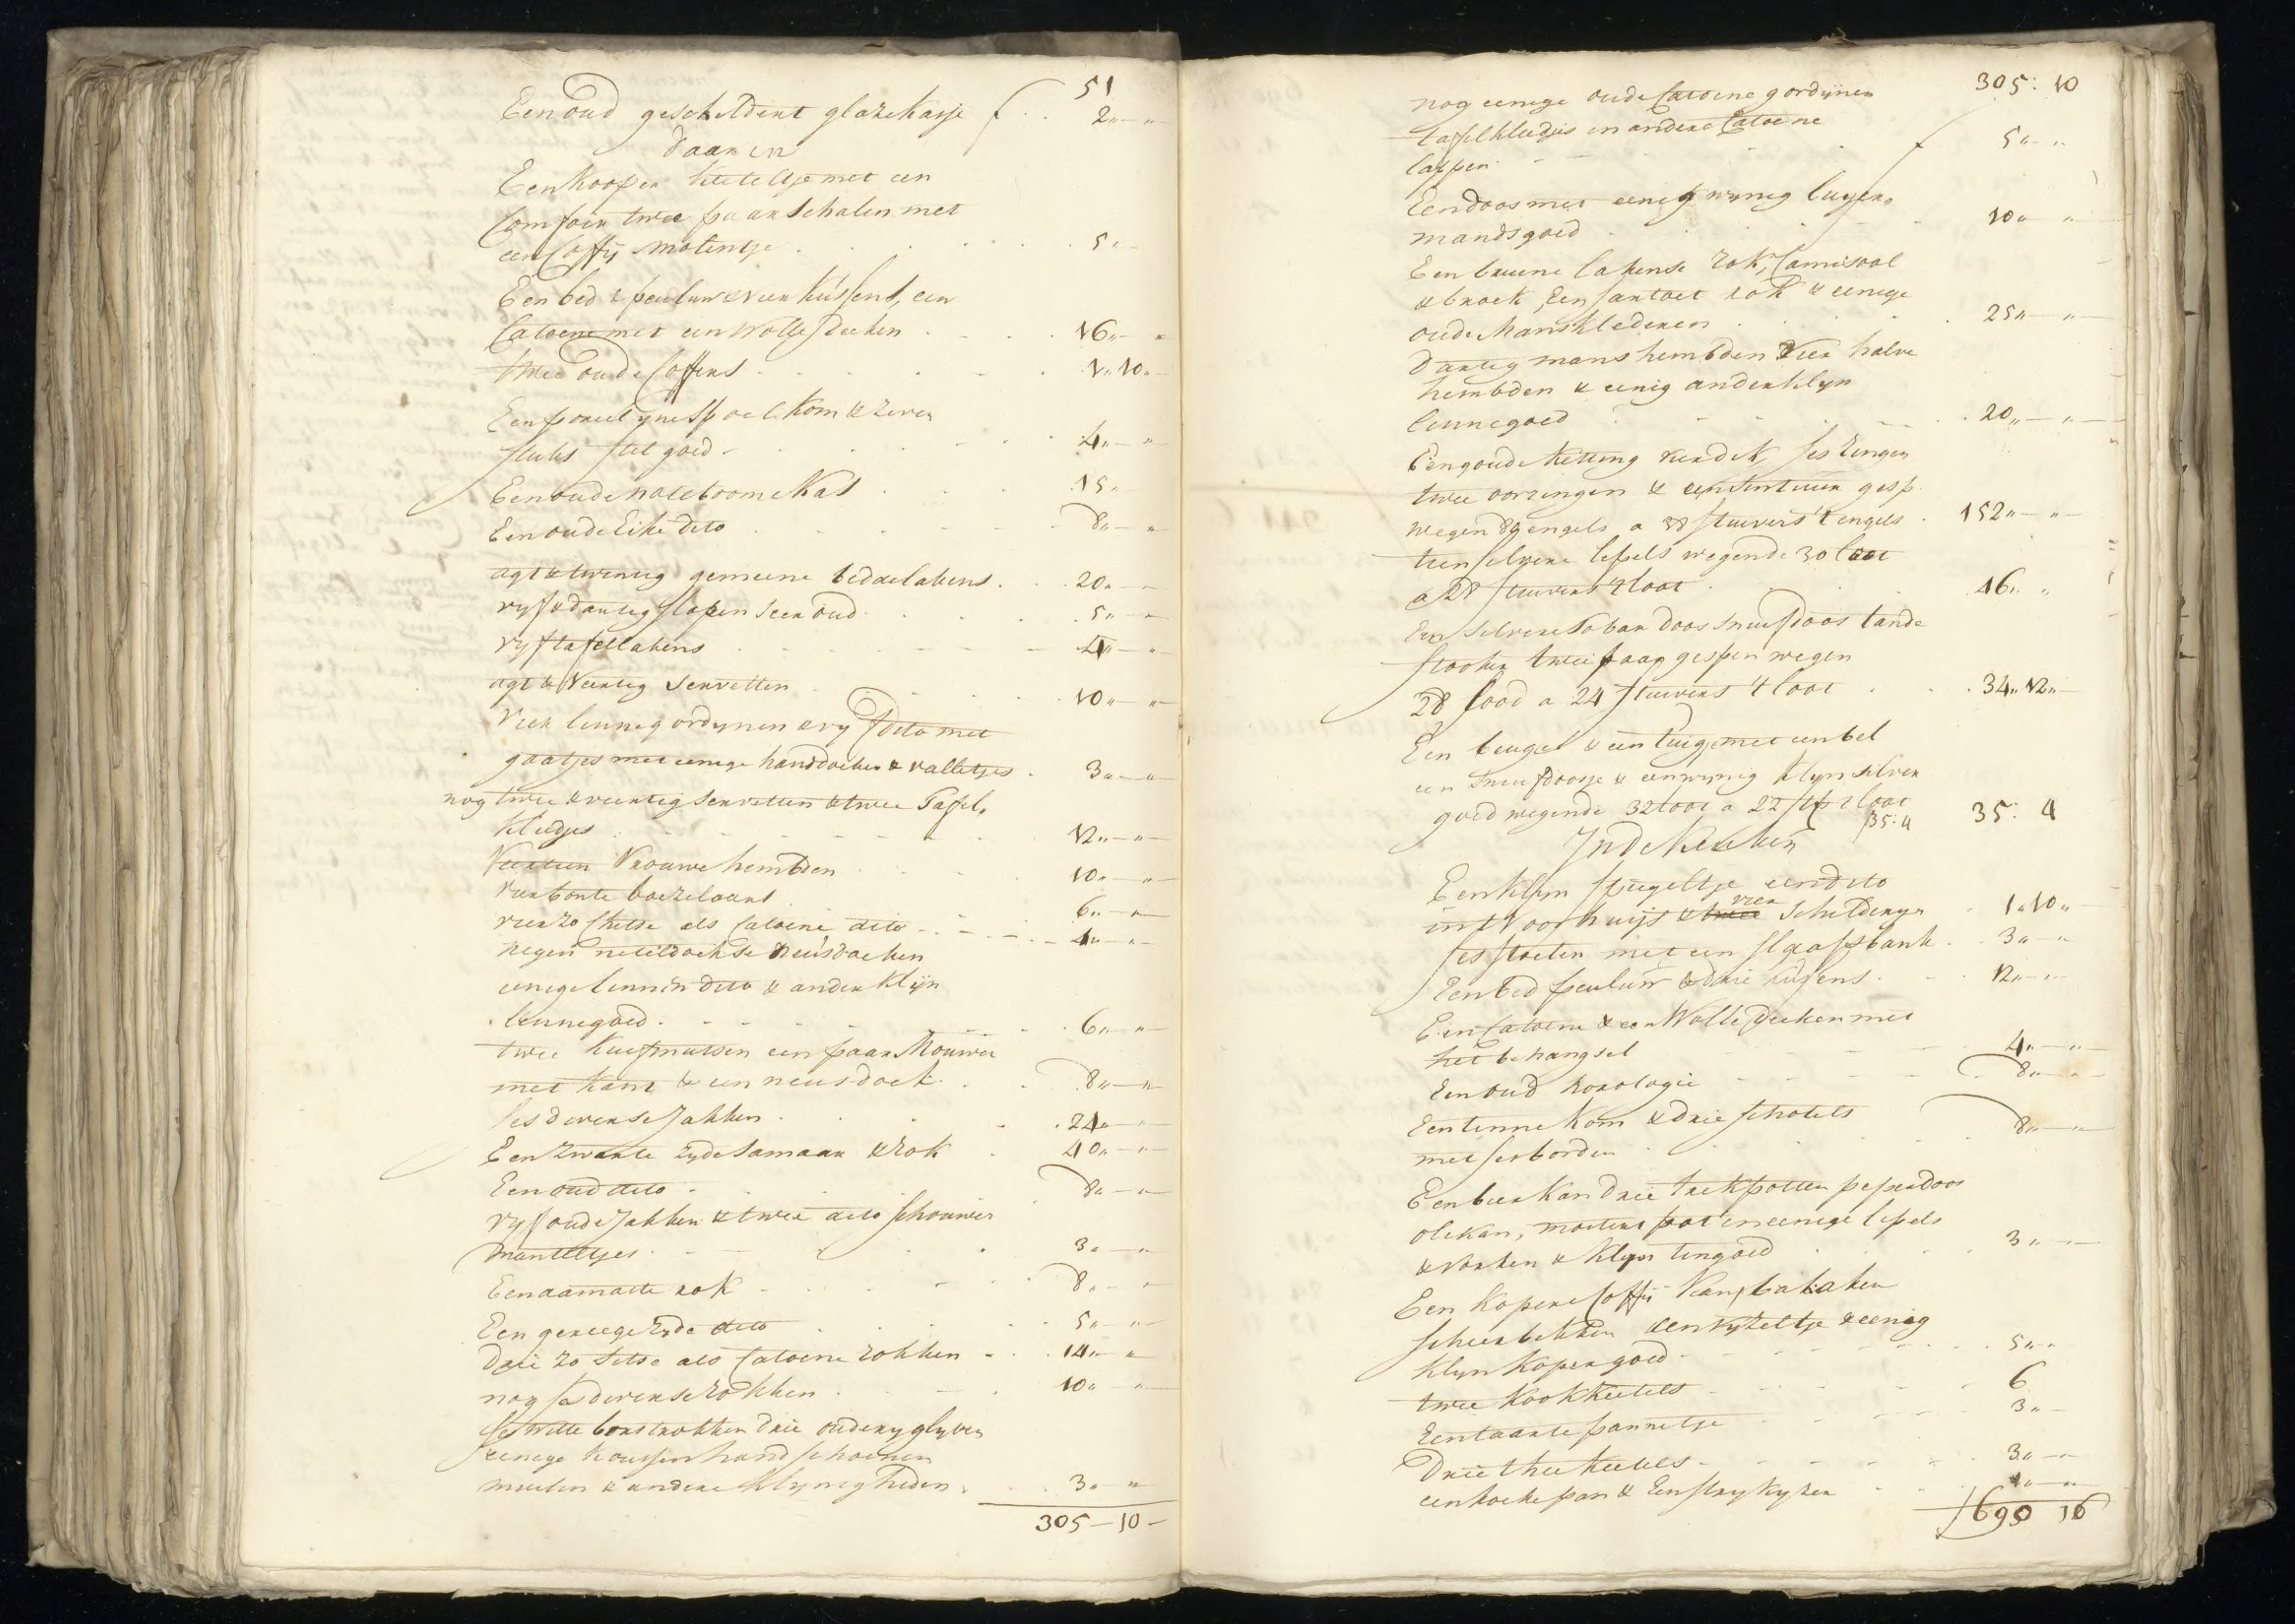 51
Een oud geschildert glazekasje f . . 2„—„
daar in
Een kooper keteltje met een
Comfoir twee paar schalen met
een Coffij molentje . . . 5„—
Een bed & peuluw & vier kussens, een
Catoene met een wolle deeken . . . 16„—„
twee oude Coffers . . . 1„10„
Een porcelyne Spoelkom & zeven
stuks stel goed . . . 4„—„
Een oude noteboome Kas . . . 15„
Een oude Eike dito . . . 8„—„
agt & twintig gemeene beddelakens . . 20„—
vyf & dartig slopen seer oud . . . 5„—„
vyf tafellakens . . . 4„—„
agt & veertig servetten . . . 10„—„
vier linne gordynen & vyf dito met
gaatjes met eenige handdoeken & valletjes . 3„—„
nog twee & veertig servetten & twee Tafel„
kleedjes . . . 12„—„
Veertien Vrouwe hembden . . . 10„—„
vier bonte boezelaars . . . 6„—„
vier zo chitse als Catoene dito . . . 4„—„
negen neteldoekse neusdoeken
eenige linnen dito & ander klijn
linnegoed . . . 6„—„
twee kuifmutsen een paar Mouwen
met kant & een neusdoek . . . 8„—„
ses diverse Jakken . . . 24„—
Een zwarte zyde Samaar & Rok . 40„—„
Een oud dito . . . 8„—„
vyf oude Jakken & twee dito schouwer
manteltjes . . . 3„—„
Een damaste rok . . . 8„—„
Een gereege zyde dito . . . 5„—„
Drie zo sitse als Catoene rokken . . 14„—„
nog ses diverse rokken . . . 10„—„
ses witte borstrokken drie oude ryglyven
eenige kousen handschoenen
muilen & andere klynigheden . . . 3„—„
305—10—
305: 10
nog eenige oude Catoene gordijnen
tafelkleedjes en andere Catoene
lappen . . . 5„—„
Een doos met eenig wynig luyer„
mandsgoed . . . 10„—„
Een bruine lakense rok, Camisool
& broek, Een santoet rok & eenige
oude Mans klederen . . . 25„—„
Dartig mans hembden Vier halve
hembden & eenig ander klyn
linnegoed . . . 20„—„—
Een goude ketting verdek ses ringen
twee oorringen & een sintuur gesp
wegen 80 engels a 38 stuivers 't engels . 152„—„
tien silvere lepels wegende 30 loot
a 28 stuivers 't loot . . . 46„ „
Een silvere Tobak doos snuifdoos tande
stooker twee paar gespen wegen
28 lood a 24 stuivers 't loot . . . 34„12„—
Een beugel & een tuigje met een bel
een snuifdoosje & een wynig klyn silver
goed wegende 32 loot a 22 st 't loot 35: 4
35: 4
In de Keuken
Een klyn spiegeltje een dito
in 't voorhuijs & vier schilderyen . 1„10„—
ses stoelen met een slaapbank . . 3„—„
Een bed peuluw & drie kussens . . 12„—„
Een Catoene & een Wolle deeken met
het behangsel . . . 4„—„
Een oud horologie . . . 8„—
Een tinne Kom & drie schotels
met ses borden . . . 8„—„
Een bier Kan drie trekpotten peperdoos
olikan, mosterd pot en eenige lepels
& vorken & klyn tingoed . . . 3„—
Een kopere Coffij kan, tabaken
scheerbekken een vyzeltje & eenig
klyn koper goed . . . 5„„
twee kook ketels . . . 6
Een taarte pannetje . . . 3„—
Drie thee ketels . . . 3„—„
een koeke pan & Een stryk yzer . . 1„—„
f 690 16